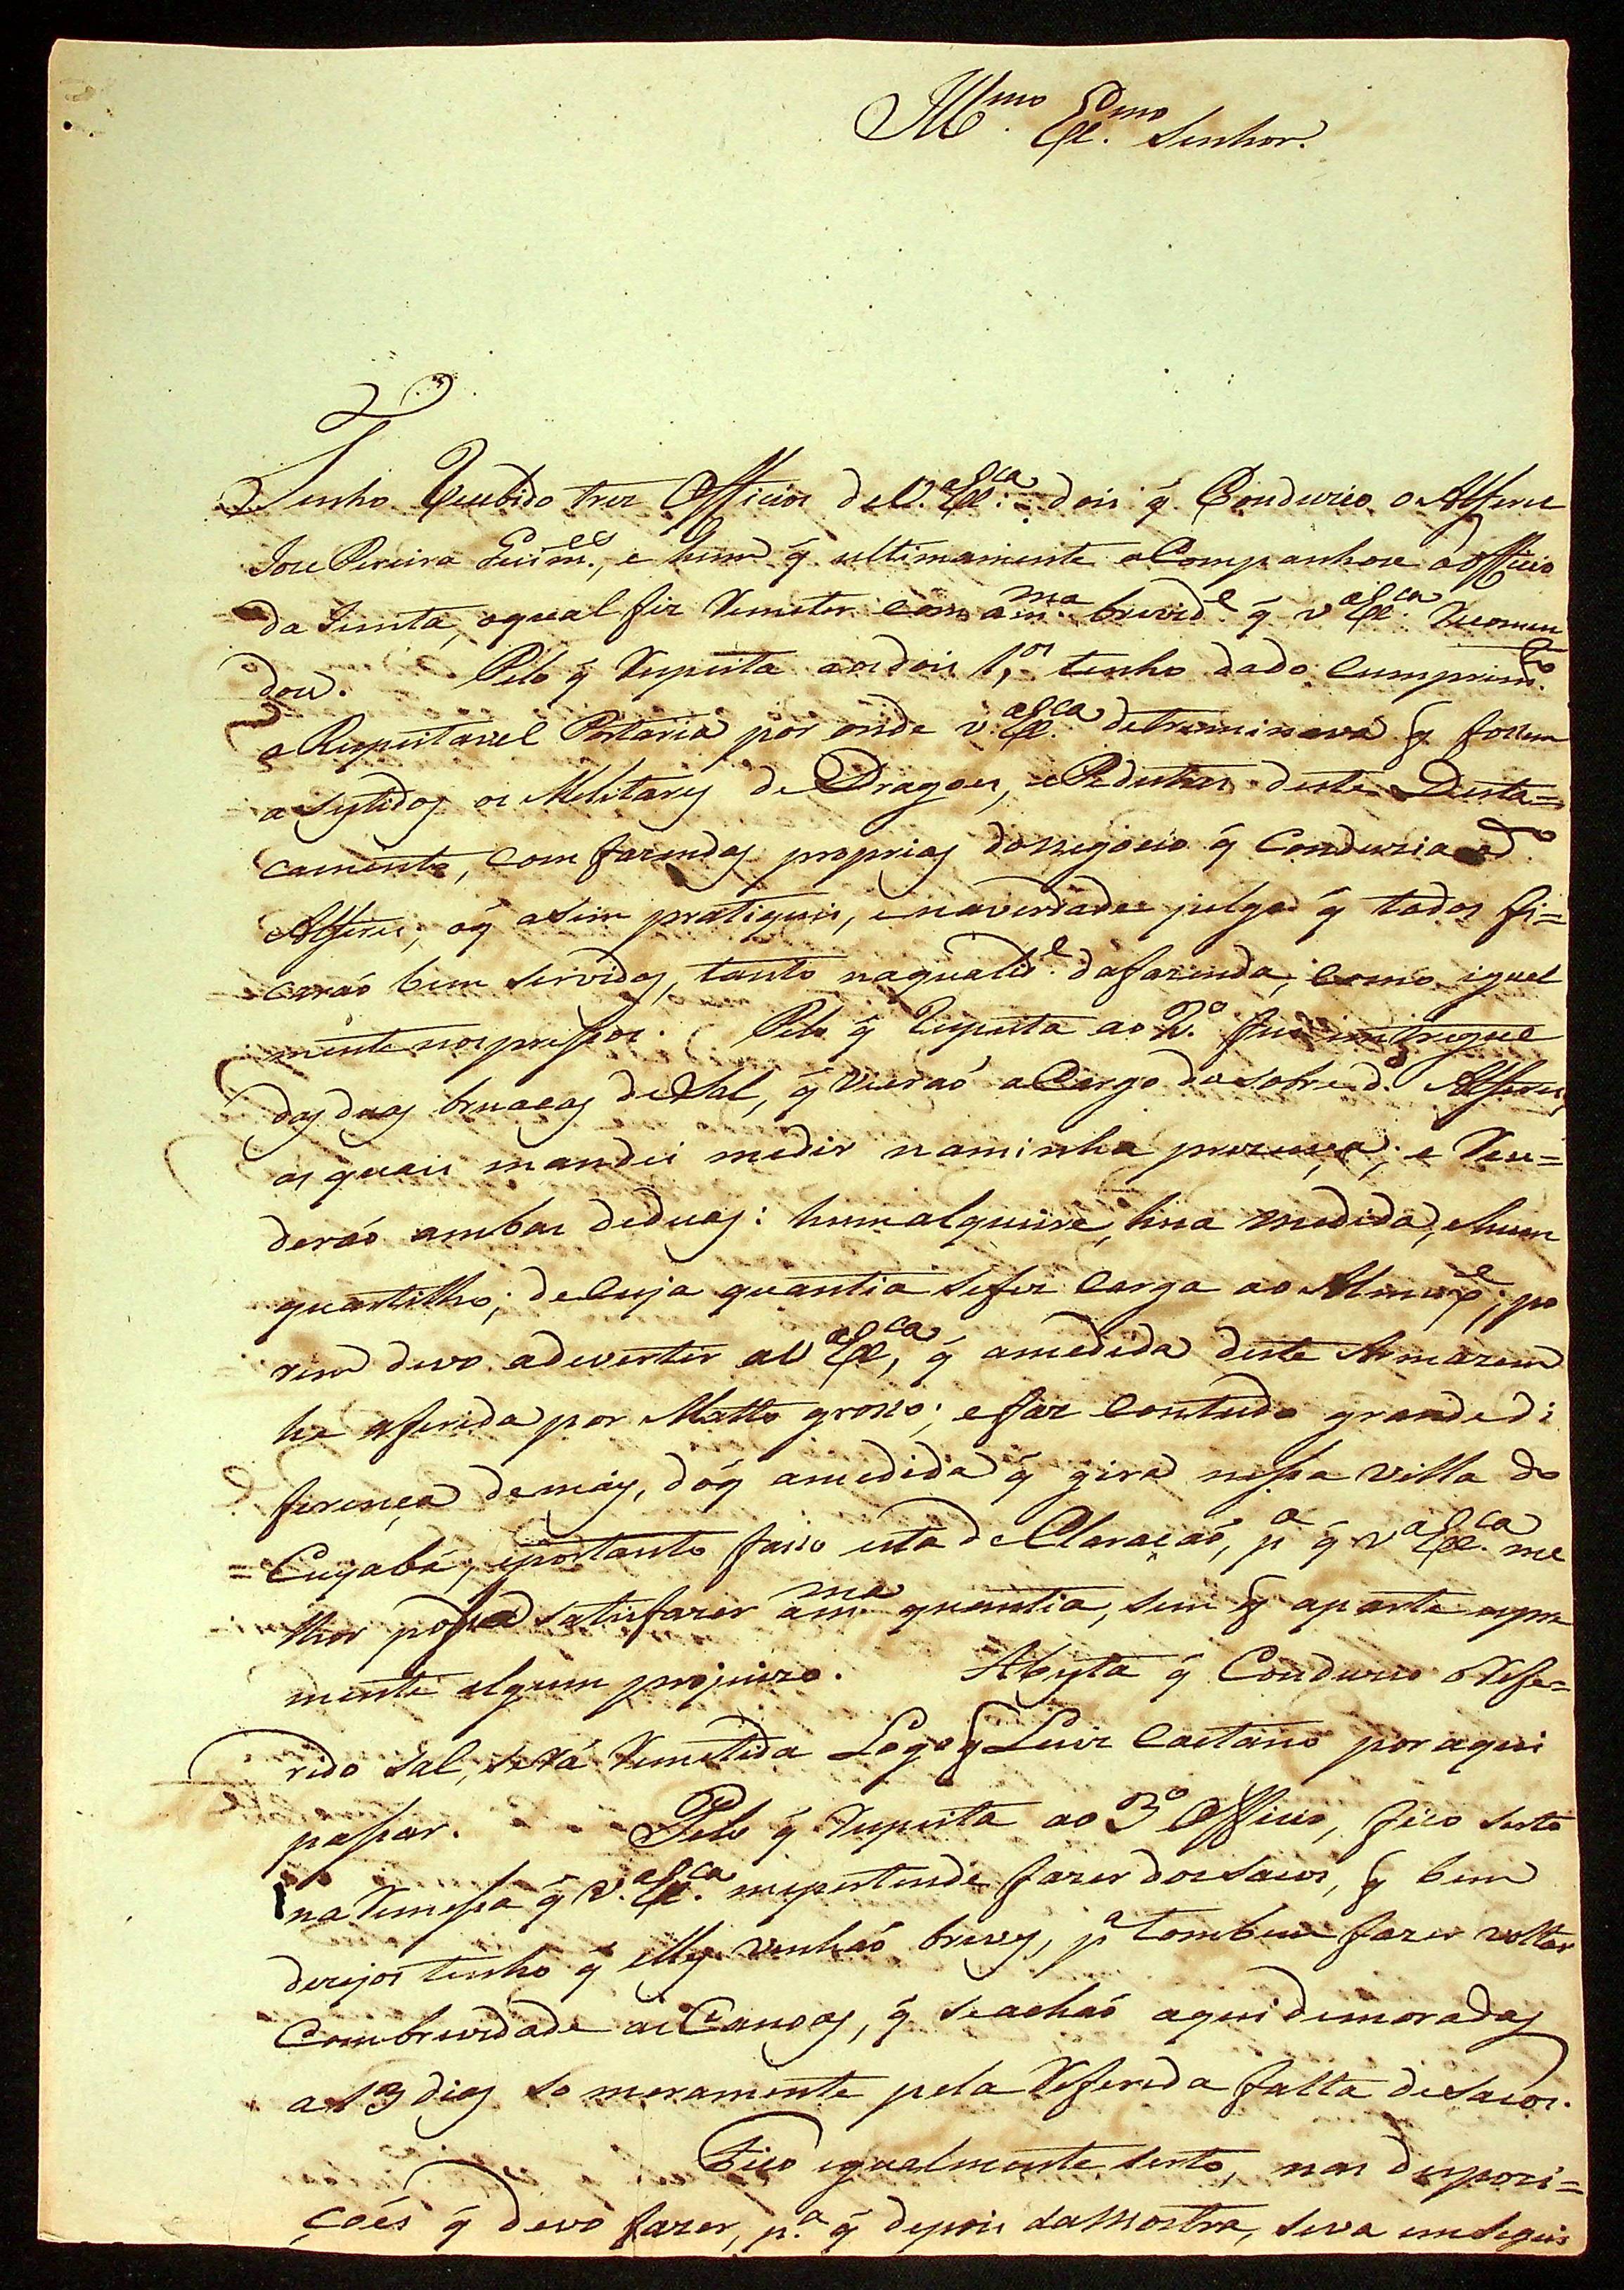 Ill.mo Ex.mo Senhor.
Tenho Recebido trez Officios de V. Ex.ca = dois q̃ Conduzio o Alferes
Joze Pereira Guim.es, e hum q̃ ultimamente acompanhou o officio
da Junta, o qual fiz Remeter com a m.ma brevid.e q̃ V Ex.ca Recomen
dou. Pelo q̃ Respeita aos dois 1.os tenho dado Cumprim.to
a Respeitavel Portaria por onde V. Ex.ca detreminava q̃ fossem
asystidos os Melitares de Dragoes, e Pedestres deste Desta=
camento, com fazendas proprias do negocio q̃ Conduzia o d.o
Alferes; o q̃ asim pratiquei, e na verdade julgo q̃ todos fi=
caraó bem servidos, tanto na qualid.e da fazenda, como igual
mente nos pressos. Pelo q̃ Respeita ao 2.o fui intregue
das duas bruacas de Sal, q̃ vieraó a Cargo do sobred.o Alferes,
as quais mandei medir na minha prezença; e Ren=
deraó ambas de duas: hum alqueire, hũa medida, e hum
quartilho; de cuja quantia se fez Carga ao Almox.e; po
rem devo adevertir a V Ex.ca, q̃ a medida deste Armazem
he aferida por Matto grosso; e faz contudo grande di
ferença demais, do q̃ a medida q̃ gira nessa Villa do
= Cuyabá; e portanto fasso esta deClaraçaó, p.a q̃ V Ex.ca me
lhor possa satisfazer a m.ma quantia, sem q̃ a parte expri
mente algum projuizo. A besta q̃ Conduzio o Refe=
rido sal, será Remetida Logo q̃ Luiz Caetano por aqui
passar. Pelo q̃ Respeita ao 3.o Officio, fico serto
na Remessa q̃ V. Ex.ca me pertende fazer dos sacos, q̃ bem
dezejos tenho q̃ elles venhaó breves, p.a tambem fazer voltar
Com brevidade as Canoas, q̃ se achaó aqui demoradas
a 13 dias so meramente pela Referida falta de sacos.
Fico igualmente serto, nas despozi=
coés q̃ devo fazer, p.a q̃ depois da Mostra, se va em segui